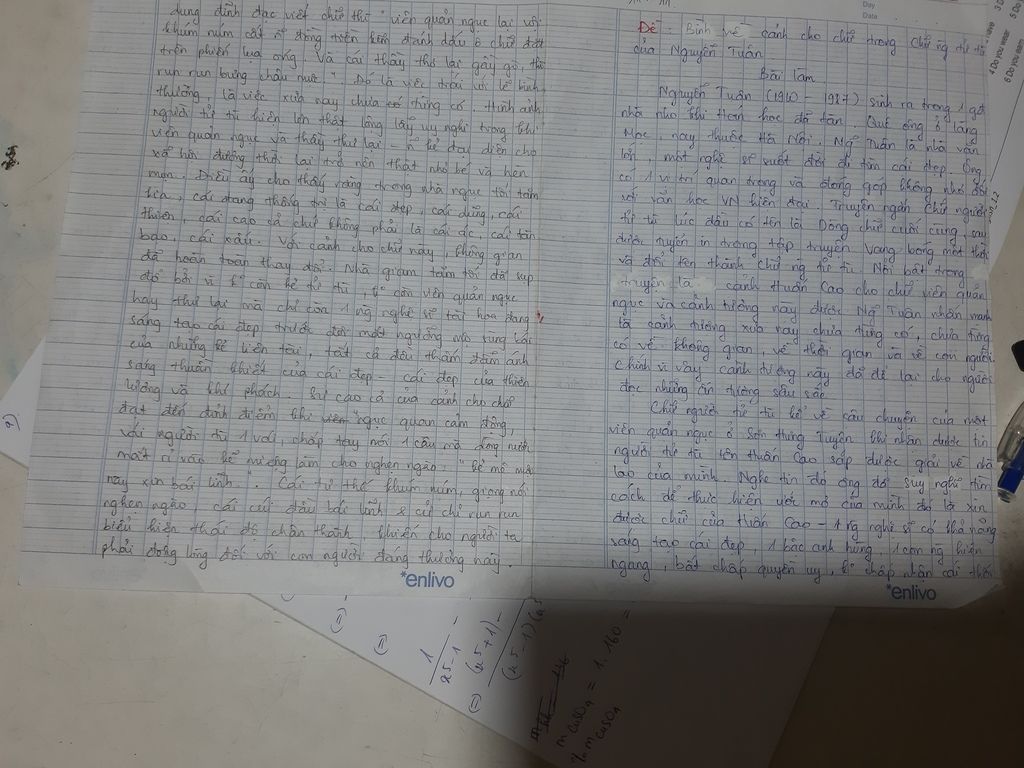 dung đĩnh đạc viết chữ thì "viên quản ngục lại vội
khúm núm cất ~ đồng tiền kẽm đánh dấu ô chữ đặt
trên phiến lụa óng. Và cái thầy thơ lại gầy gò, thì
run run bưng chậu mực". Đó là việc trái với lẽ bình
thường, là việc xưa nay chưa có từng có. Hình ảnh
người tử tù hiện lên thật lồng lẫy uy nghi trong khi
viên quản ngục và thầy thơ lại - ~ kẻ đại diện cho
xã hội đương thời lại trở nên thật nhỏ bé và hèn
mọn. Điều ấy cho thấy rằng trong nhà ngục tối tăm
kia, cái đang thống trị là cái đẹp, cái dũng, cái
thiện, cái cao cả chứ không phải là cái ác, cái tàn
bạo, cái xấu. Với cảnh cho chữ này, không gian
đã hoàn toàn thay đổi. Nhà giam tăm tối đã sụp
đổ bởi vì k còn kẻ tử tù, k còn viên quản ngục
hay thơ lại mà chỉ còn 1 ng nghệ sĩ tài hoa đang
sáng tạo cái đẹp trước đôi mắt ngưỡng mộ sùng bái
của những kẻ liên tài, tất cả đều thấm đẫm ánh
sáng thuần khiết của cái đẹp - cái đẹp của thiên
lương và khí phách. Sự cao cả của cảnh cho chữ
đạt đến đỉnh điểm khi viên ngục quan cảm động,
vái người tù 1 vái, chắp tay nói 1 câu mà dòng nước
mắt rỉ vào kẽ miệng làm cho nghẹn ngào: "Kẻ mê muội
này xin bái lĩnh". Cái tư thế khúm núm, giọng nói
nghẹn ngào, cái cúi đầu bái lĩnh & cử chỉ run run
biểu hiện thái độ chân thành khiến cho người ta
phải động lòng đối với con người đáng thương này.
*enlivo
Day
Date
Đề: Bình về cảnh cho chữ trong Chữ ng tử tù
của Nguyễn Tuân
Bài làm
Nguyễn Tuân (1910 - 1987) sinh ra trong 1 gđ
nhà nho khi Hán học đã tàn. Quê ông ở làng
Mọc nay thuộc Hà Nội. Ng Tuân là nhà văn
lớn, một nghệ sĩ suốt đời đi tìm cái đẹp. Ông
có 1 vị trí quan trọng và đóng góp không nhỏ đối
với văn học VN hiện đại. Truyện ngắn Chữ người
tử tù lúc đầu có tên là Dòng chữ cuối cùng, sau
được tuyển in trong tập truyện Vang bóng một thời
và đổi tên thành Chữ ng tử tù. Nổi bật trong
truyện là cảnh Huấn Cao cho chữ viên quản
ngục và cảnh tượng này được Ng Tuân nhấn mạnh
là cảnh tượng xưa nay chưa từng có, chưa từng
có về không gian, về thời gian và về con người.
Chính vì vậy cảnh tượng này đã để lại cho người
đọc những ấn tượng sâu sắc.
Chữ người tử tù kể về câu chuyện của một
viên quản ngục ở Sơn Hưng Tuyên khi nhận được tin
người tử tù tên Huấn Cao sắp được giải về nhà
lao của mình. Nghe tin đó ông đã suy nghĩ tìm
cách để thực hiện ước mơ của mình đó là xin
được chữ của Huấn Cao - 1 ng nghệ sĩ có khả năng
sáng tạo cái đẹp, 1 bậc anh hùng, 1 con ng hiên
ngang, bất chấp quyền uy, k chấp nhận cái thời
*enlivo